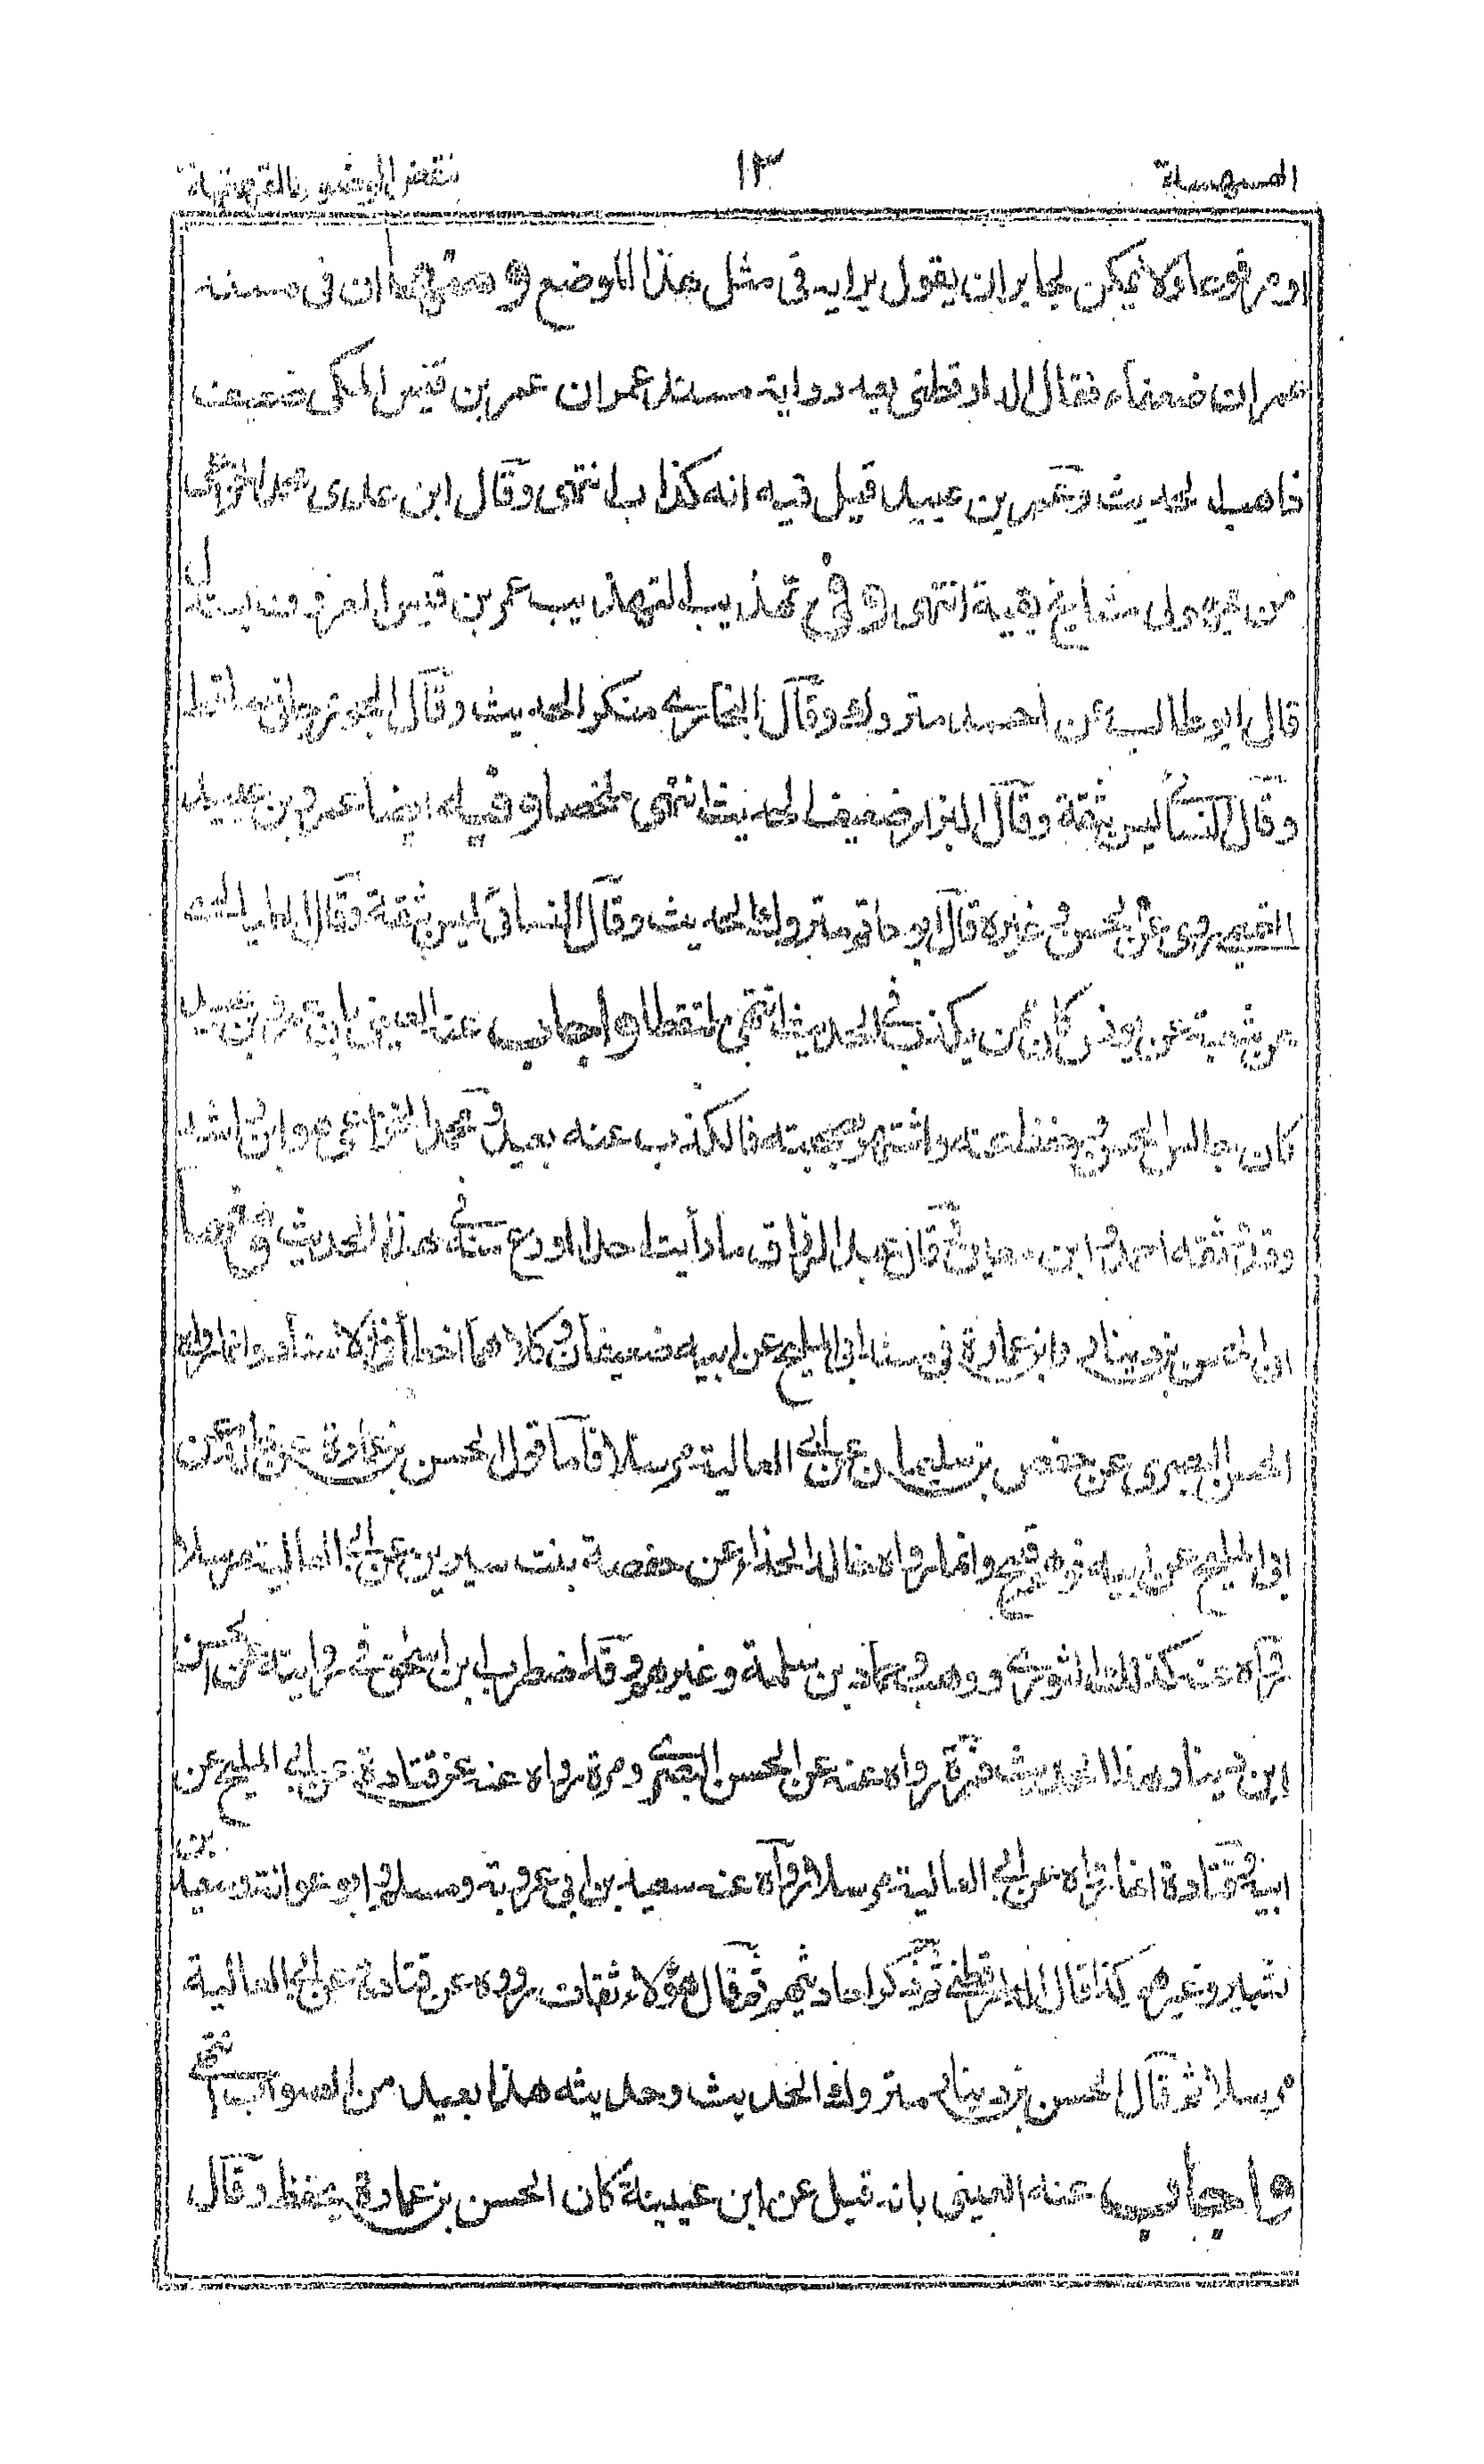 الهسهسة ١٣ نقض الوضوء بالقهقهة
او مرفوعا ولا يمكن لجابر ان يقول برايه فى مثل هذا الموضع ومنها ان فى سنده
عمران ضعفاء فقال الدارقطنى بعد رواية مسند عمران عمر بن قيس المكى ضعيف
ذاهب الحديث وعمرو بن عبيد قيل فيه انه كذاب انتهى وقال ابن عدى محمد الخزاعى
من مجهولى مشايخ بقية انتهى وفى تهذيب التهذيب عمر بن قيس المعروف بسندل
قال ابو طالب عن احمد متروك وقال البخارى منكر الحديث وقال الجوزجانى ساقط
وقال النسائى ليس بثقة وقال البزار ضعيف الحديث انتهى ملخصا وفيه ايضا عمرو بن عبيد
روى عن الحسن وغيره قال ابو حاتم متروك الحديث وقال النسائى ليس بثقة وقال الطيالسى
عن شعبة عن يونس كان ممن يكذب فى الحديث انتهى ملتقطا واجاب عنه العينى بان عمرو بن عبيد
كان جالس الحسن وحفظ عنه واشتهر بصحبته فالكذب عنه بعيد ومحمد الخزاعى هو ابن راشد
وقد وثقه احمد وابن معين وقال عبد الرزاق ما رأيت احدا اورع منه فى هذا الحديث ومنها
ان الحسن بن دينار وابن عمارة فى مسند ابى المليح عن ابيه ضعيفان وكلاهما اخطأ فى الاسناد وانما رواه
الحسن البصرى عن حفص بن سليمان عن ابى العالية مرسلا فاما قول الحسن بن عمارة عن خالد عن
ابى المليح عن ابيه فوهم قبيح وانما رواه خالد الحذاء عن حفصة بنت سيرين عن ابى العالية مرسلا
رواه عنه كذلك الثورى ووهب وحماد بن سلمة وغيرهم وقد اضطرب ابن اسحق فى روايته عن الحسن
ابن دينار هذا الحديث فمرة رواه عنه عن الحسن البصرى ومرة رواه عنه عن قتادة عن ابى المليح عن
ابيه وقتادة انما رواه عن ابى العالية مرسلا ورواه عنه سعيد بن ابى عروبة ومسلم وابو عوانة وسعيد بن
بشير وغيرهم كذا قال الدارقطنى ثم ذكر احاديثهم ثم قال هؤلاء ثقات رووه عن قتادة عن ابى العالية
مرسلا ثم قال الحسن بن دينار متروك الحديث وحديثه هذا بعيد من الصواب انتهى
واجاب عنه العينى بانه قيل عن ابن عيينة كان الحسن بن عمارة يحفظ وقال